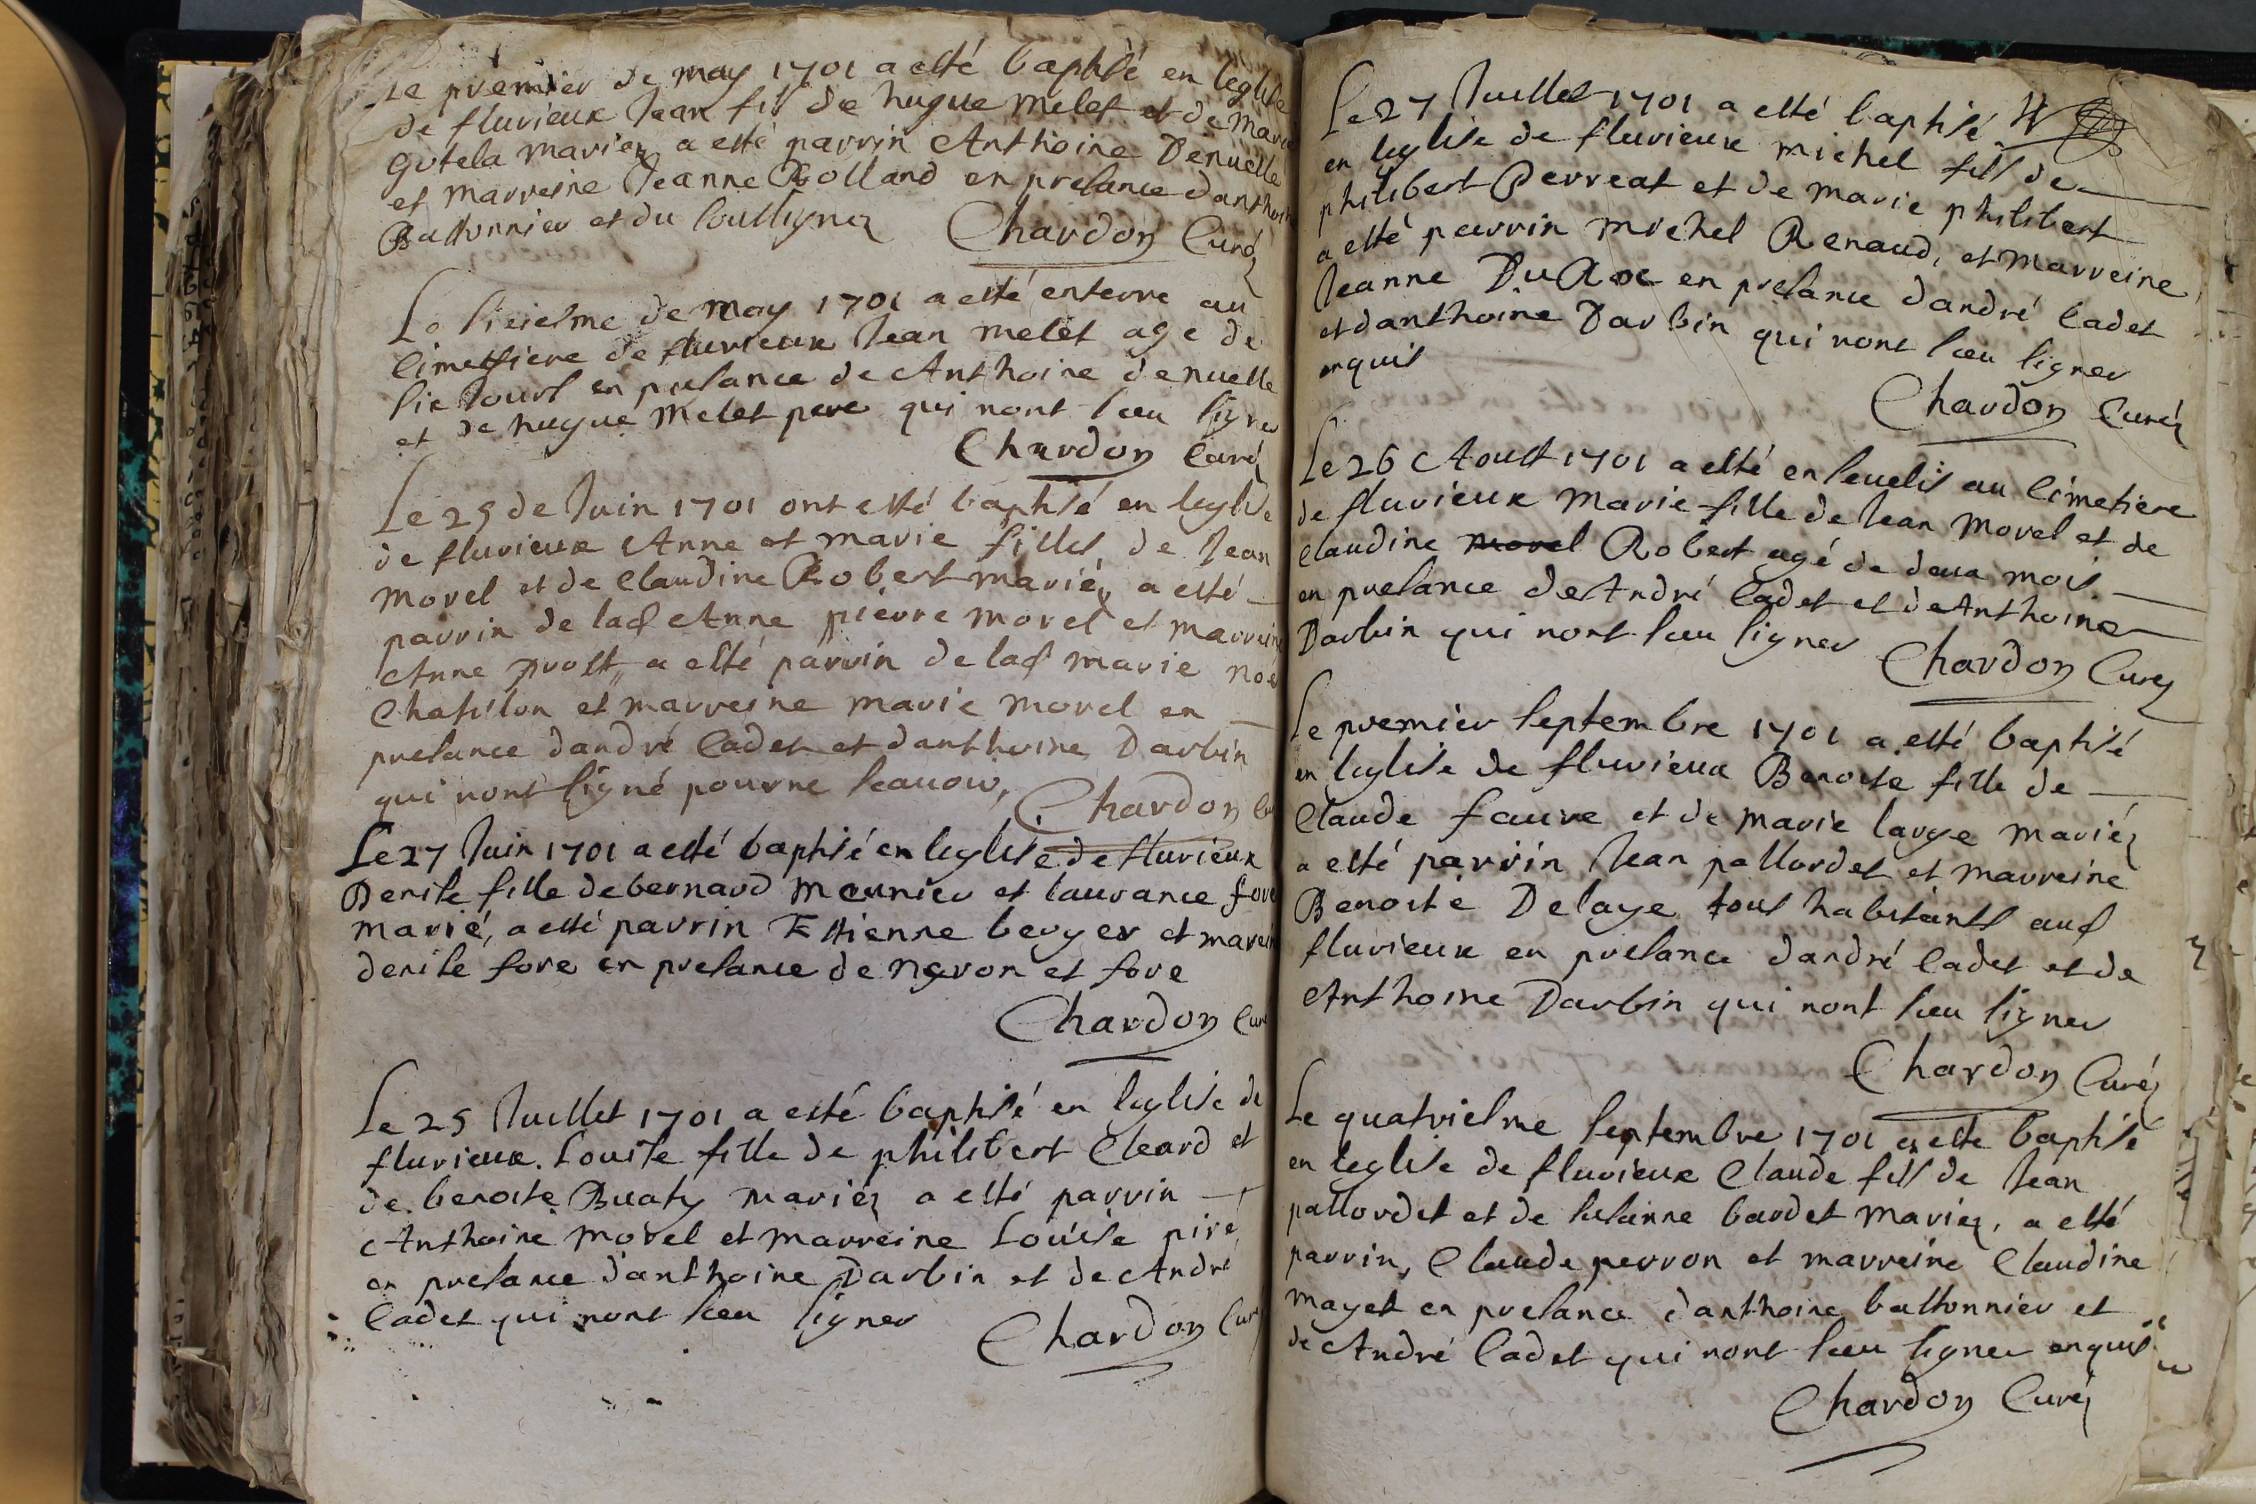 Le premier de may 1701 a esté baptisé en leglise
de fluvieux Jean fils de hugue melet et de marie
gotela mariez a esté parrin Anthoine Denuelle
et marreine Jeanne Rolland en presance danthoine
Bastonnier et du soussignez Chardon Curé
Le sixiesme de may 1701 a esté enterre au
Cimettiere de fluvieux Jean melet age de
six jours en presance de Anthoine denuelle
et de hugue melet pere qui nont sceu signer
Chardon Curé
Le 25 de Juin 1701 ont esté baptisé en leglise
de fluvieux Anne et marie filles de Jean
morel et de Claudine Robert mariéz a esté
parrin de lad Anne pierre morel et marreine
Anne prost a esté parrin de lad marie noé
Chatilon et marreine marie morel en
presance dandré Cadet et danthoine Darbin
qui nont signé pour ne scavoir, Chardon Cu
Le 27 Juin 1701 a esté baptisé en leglise de fluvieux
Denise fille de bernard meunier et laurance fore
marié, a esté parrin Estienne berger et mareine
denise fore en presance de nyron et fore
Chardon Curé
Le 25 Juillet 1701 a esté baptisé en leglise de
fluvieux. Louise fille de philibert Cleard et
de benoite Buaty mariéz a esté parrin
Anthoine morel et marreine Louise piré
en presance danthoine Darbin et de André
Cadet qui nont sceu signer Chardon Curé
Le 27 Juillet 1701 a esté baptisé
en leglise de fluvieux michel fils de
philibert Perreat et de marie philibert
a esté parrin michel Renaud, et marreine
Jeanne DuRoc en presance dandré Cadet
et danthoine Darbin qui nont sceu signer
enquis
Chardon Curéz
Le 26 Aoust 1701 a esté enseuelis au Cimetiere
de fluvieux Marie fille de Jean Morel et de
Claudine morel Robert agé de deux mois
en presance de André Cadet et de Anthoine
Darbin qui nont sceu signer Chardon Curéz
Le premier septembre 1701 a esté baptisé
en leglise de fluvieux Benoite fille de
Claude faure et de marie large mariéz
a esté parrin Jean pallordet et marreine
Benoite Delaye tous habitants aud
fluvieux en presance dandré Cadet et de
Anthoine Darbin qui nont sceu signer
Chardon Curéz
Le quatriesme septembre 1701 a esté baptisé
en leglise de fluvieux Claude fils de Jean
pallordet et de susanne bardet mariez, a esté
parrin, Claude perron et marreine Claudine
mayet en presance danthoine bastonnier et
de André Cadet qui nont sceu signer enquis
Chardon Curéz